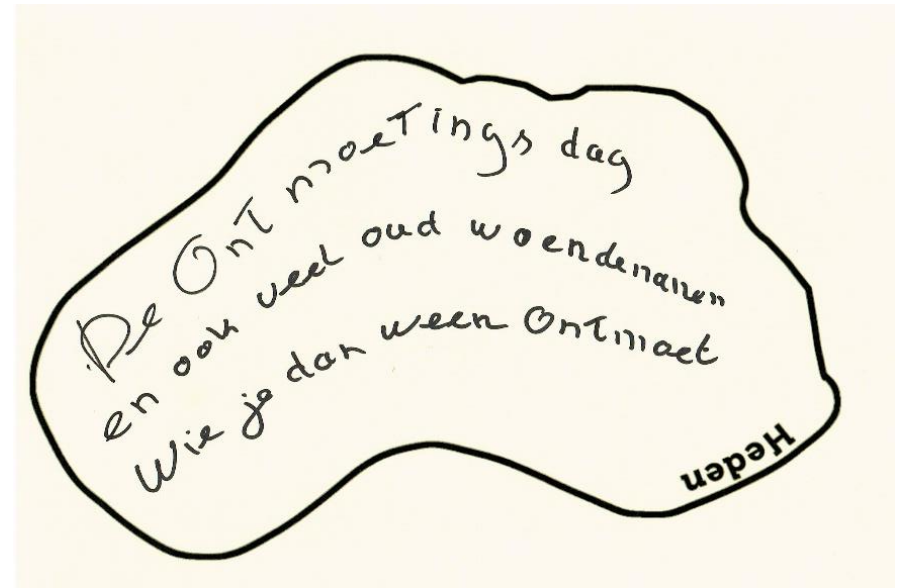 De Ontmoetings dag
en ook veel oud woerdenaren
Wie je dan weer Ontmoet
Heden